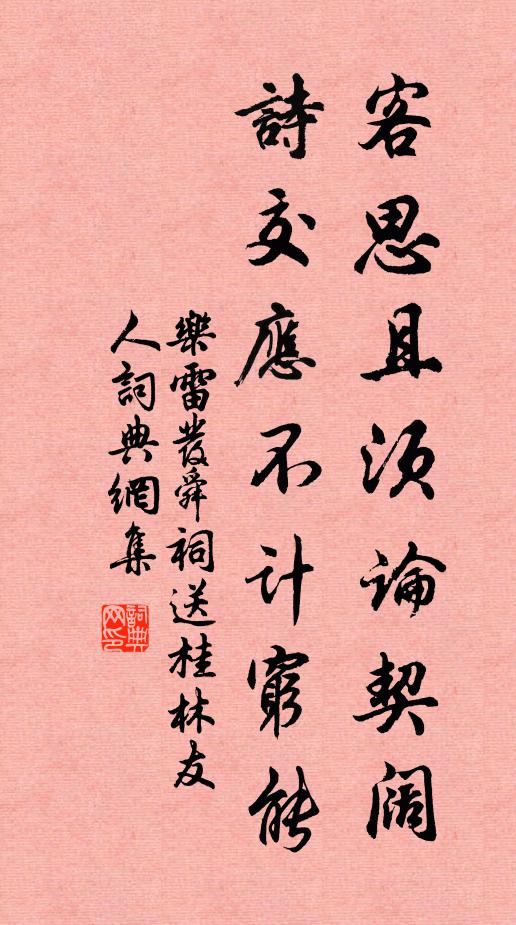 客思且須論契闊
詩交應不計窮能
樂雷發舜祠送桂林友
人詞典網集
詞典
网印